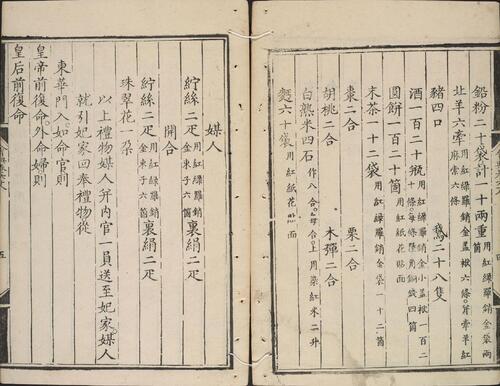 鉛粉二十袋計一十兩重用紅綠羅銷金袋兩箇
北羊六牽用紅綠羅銷金蓋袱六條麻索六條
豬四口 鵝二十八隻
酒一百二十瓶
圓餅一百二十箇用紅綠紙花貼面
末茶一十二袋用紅綠羅銷金袋一十二箇
棗二合 栗二合
胡桃二合 木彈二合
白熟米四石作八合每合上用染紅米二升
麵六十袋用紅紙花貼面
媒人
紵絲二疋用紅綠羅銷金束子六箇裏絹二疋
開合
紵絲二疋用紅綠羅銷金束子六箇裏絹二疋
珠翠花一朶
以上禮物媒人并内官一員送至妃家媒人
就引妃家回奉禮物從
東華門入如命官則
皇帝前復命外命婦則
皇后前復命
五